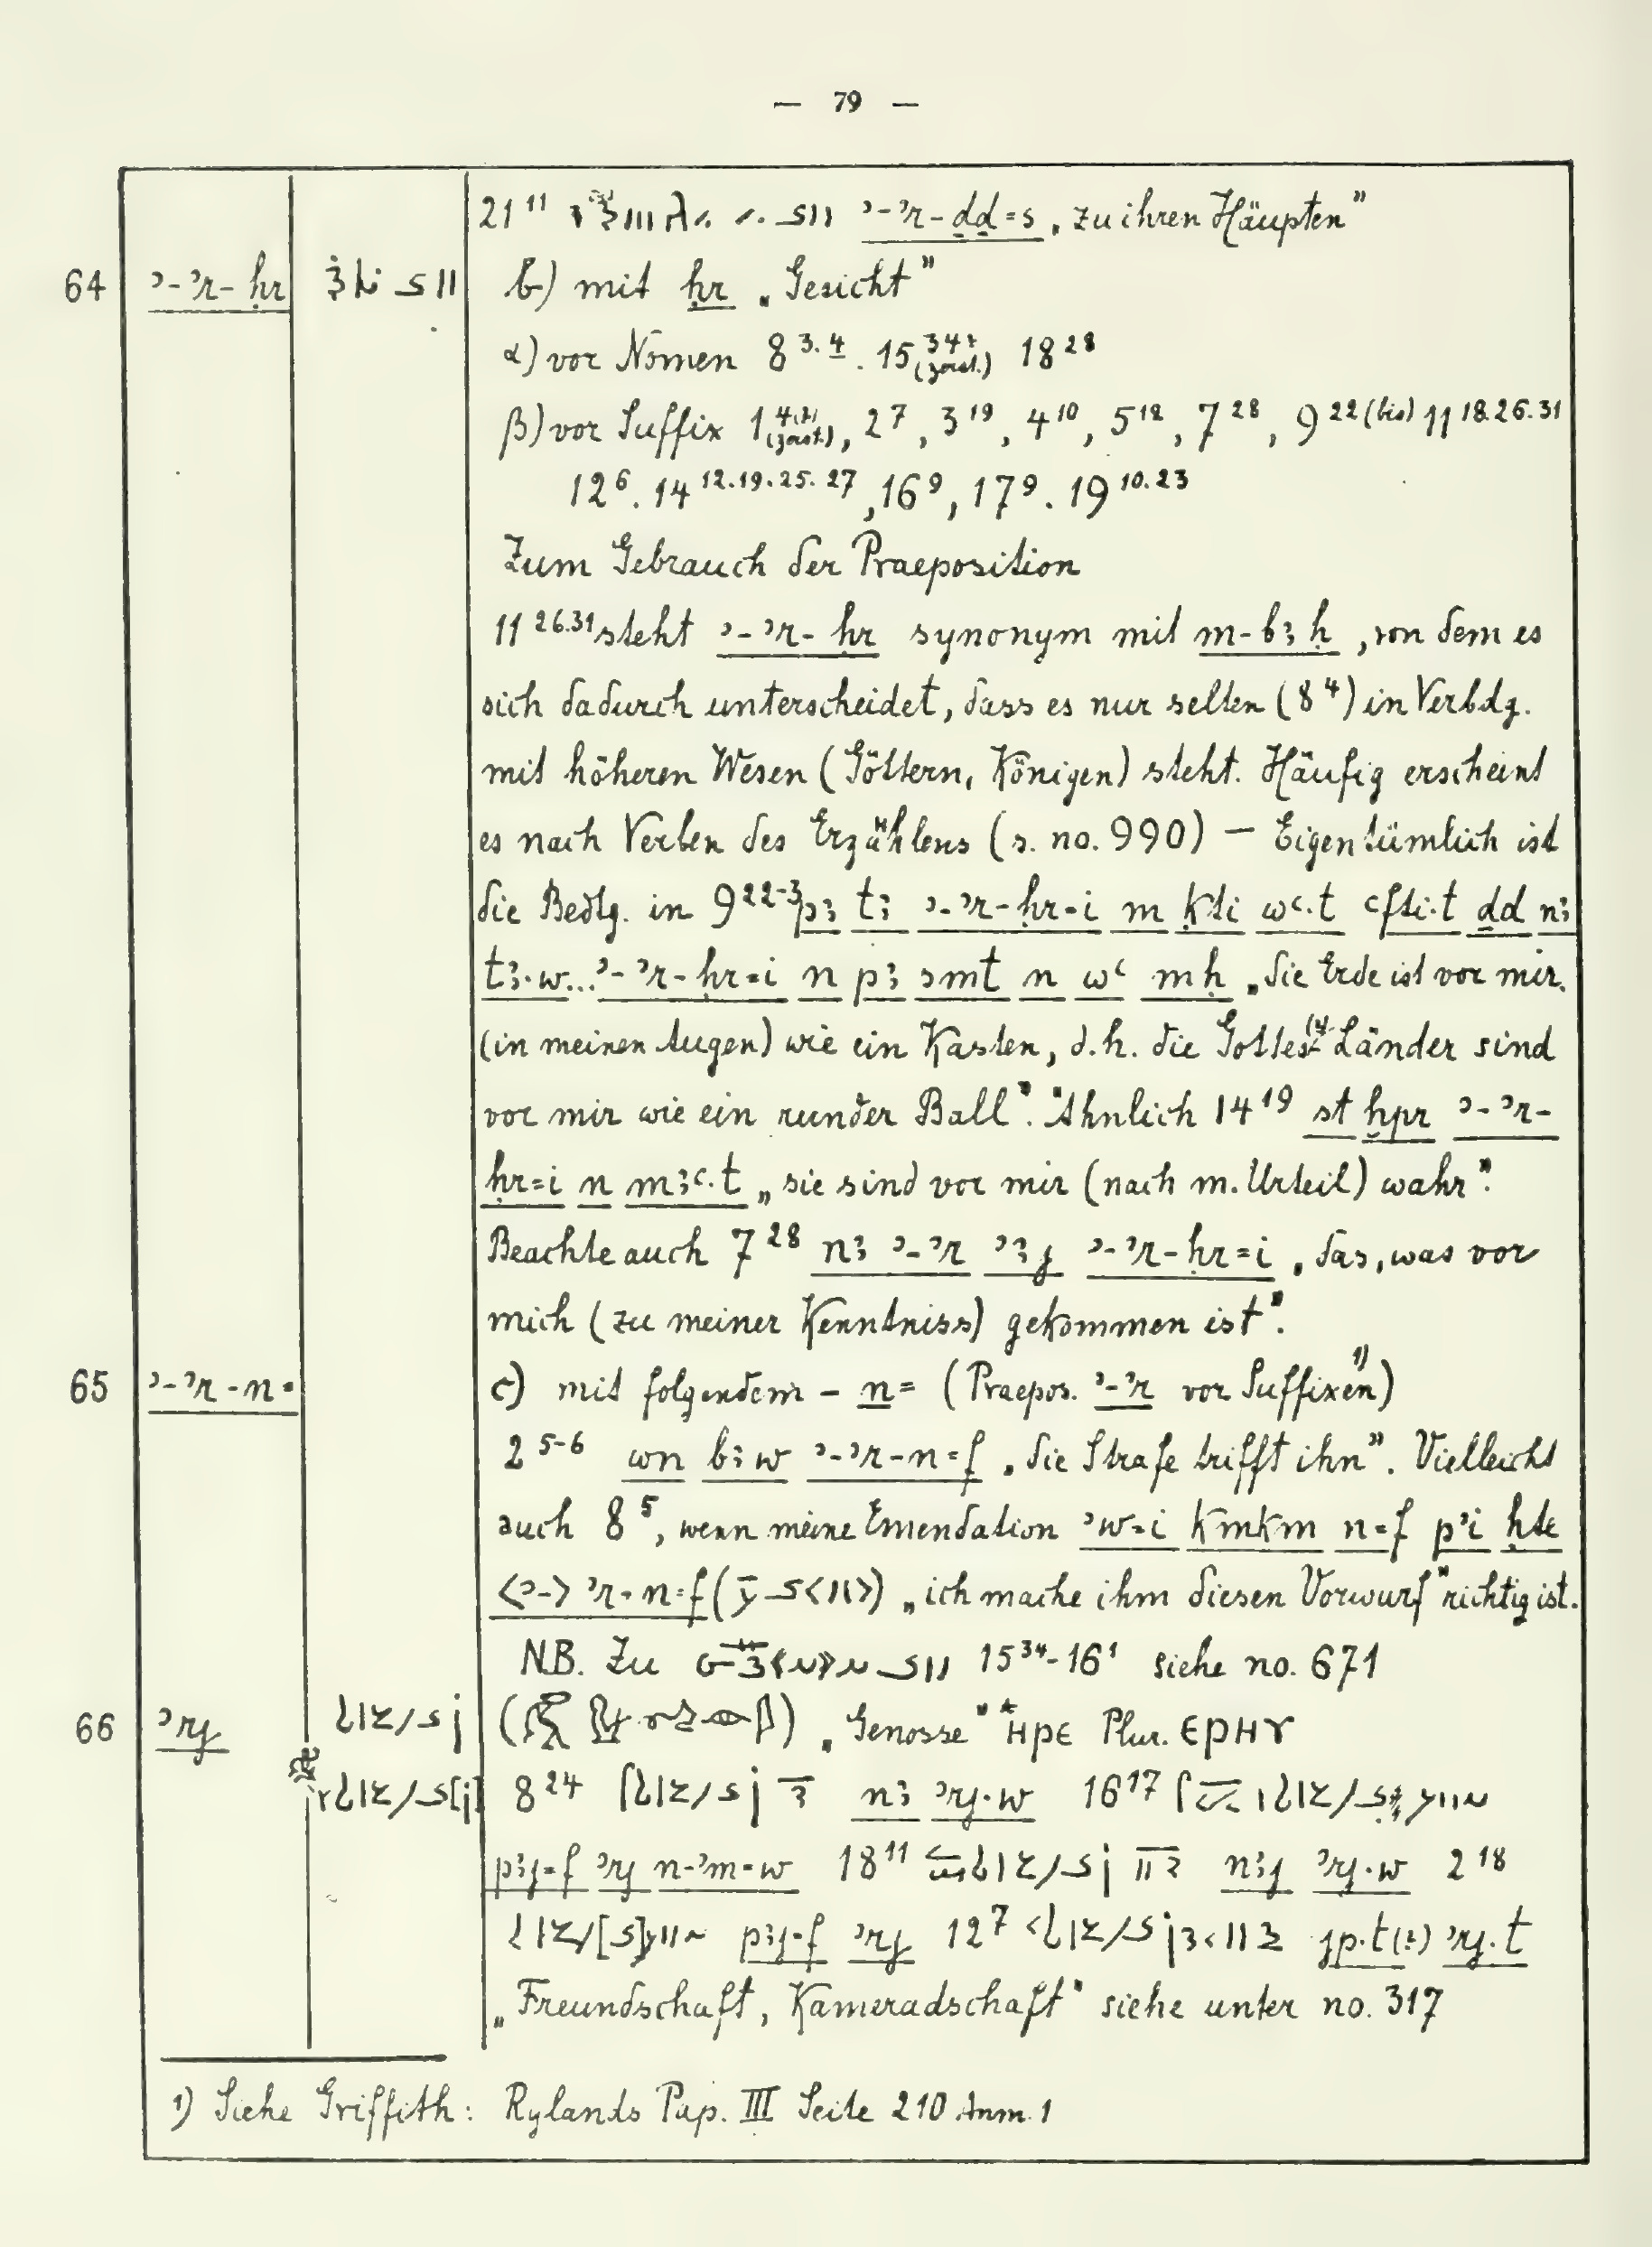 — 79 —
21¹¹ ꜣ-ꜣr-ḏḏ=s „zu ihren Häupten”
64 ꜣ-ꜣr-ḥr b) mit ḥr „Gesicht”
α) vor Nomen 8³·⁴. 15³⁴? (zerst.) 18²⁸
β) vor Suffix 1⁴⁽?⁾ (zerst.), 2⁷, 3¹⁹, 4¹⁰, 5¹², 7²⁸, 9²² ⁽bis⁾ 11¹⁸·²⁶·³¹
12⁶. 14¹²·¹⁹·²⁵·²⁷, 16⁹, 17⁹. 19¹⁰·²³
Zum Gebrauch der Praeposition
11²⁶·³¹ steht ꜣ-ꜣr-ḥr synonym mit m-bꜣḥ, von dem es
sich dadurch unterscheidet, dass es nur selten (8⁴) in Verbdg.
mit höheren Wesen (Göttern, Königen) steht. Häufig erscheint
es nach Verben des Erzählens (s. no. 990) — Eigentümlich ist
die Bedtg. in 9²²⁻³ pꜣ tꜣ ꜣ-ꜣr-ḥr=i m ḳti wꜥ.t ꜥfti.t ḏd nꜣ
tꜣ.w... ꜣ-ꜣr-ḥr=i n pꜣ smt n wꜥ mḥ „die Erde ist vor mir
(in meinen Augen) wie ein Kasten, d.h. die Gottes(?)-Länder sind
vor mir wie ein runder Ball”. Ähnlich 14¹⁹ st ḫpr ꜣ-ꜣr-
ḥr=i n mꜣꜥ.t „sie sind vor mir (nach m. Urteil) wahr”.
Beachte auch 7²⁸ nꜣ ꜣ-ꜣr ꜣꜣj ꜣ-ꜣr-ḥr=i „das, was vor
mich (zu meiner Kenntniss) gekommen ist”.
65 ꜣ-ꜣr-n= c) mit folgendem -n= (Praepos. ꜣ-ꜣr vor Suffixen¹⁾)
2⁵⁻⁶ wn bꜣw ꜣ-ꜣr-n=f „die Strafe trifft ihn”. Vielleicht
auch 8⁵, wenn meine Emendation ꜣw=i kmkm n=f pꜣi ḥte
<ꜣ-> ꜣr-n=f „ich mache ihm diesen Vorwurf” richtig ist.
N.B. Zu 15³⁴-16¹ siehe no. 671
66 ꜣrj „Genosse” *Ηρε Plur. ⲈⲢⲎⲨ
8²⁴ nꜣ ꜣrj.w 16¹⁷
pꜣj=f ꜣrj n-ꜣm=w 18¹¹ nꜣj ꜣrj.w 2¹⁸
pꜣj=f ꜣrj 12⁷ jp.t(?) ꜣrj.t
„Freundschaft, Kameradschaft” siehe unter no. 317
1) Siehe Griffith: Rylands Pap. III Seite 210 Anm. 1